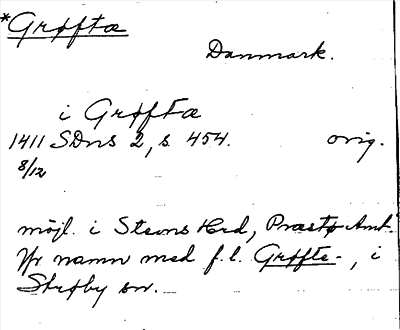 *Grøftæ
Danmark.
i Grøftæ
1411 SDns 2, s 454. orig.
8/12
möjl. i Stevns Hrd, Præstø Amt.
Jfr namn med f.l. Grøfte-, i
Skrøby sn.